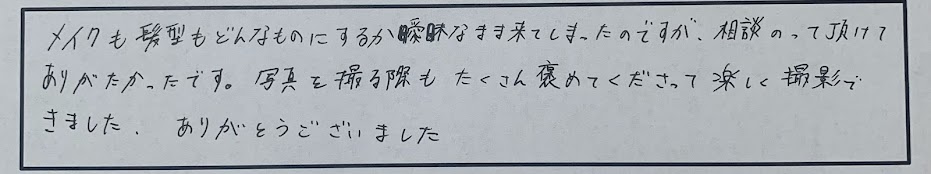 メイクも髪型もどんなものにするか曖昧なまま来てしまったのですが、相談のって頂けて
ありがたかったです。写真を撮る際もたくさん褒めてくださって楽しく撮影で
きました、ありがとうございました